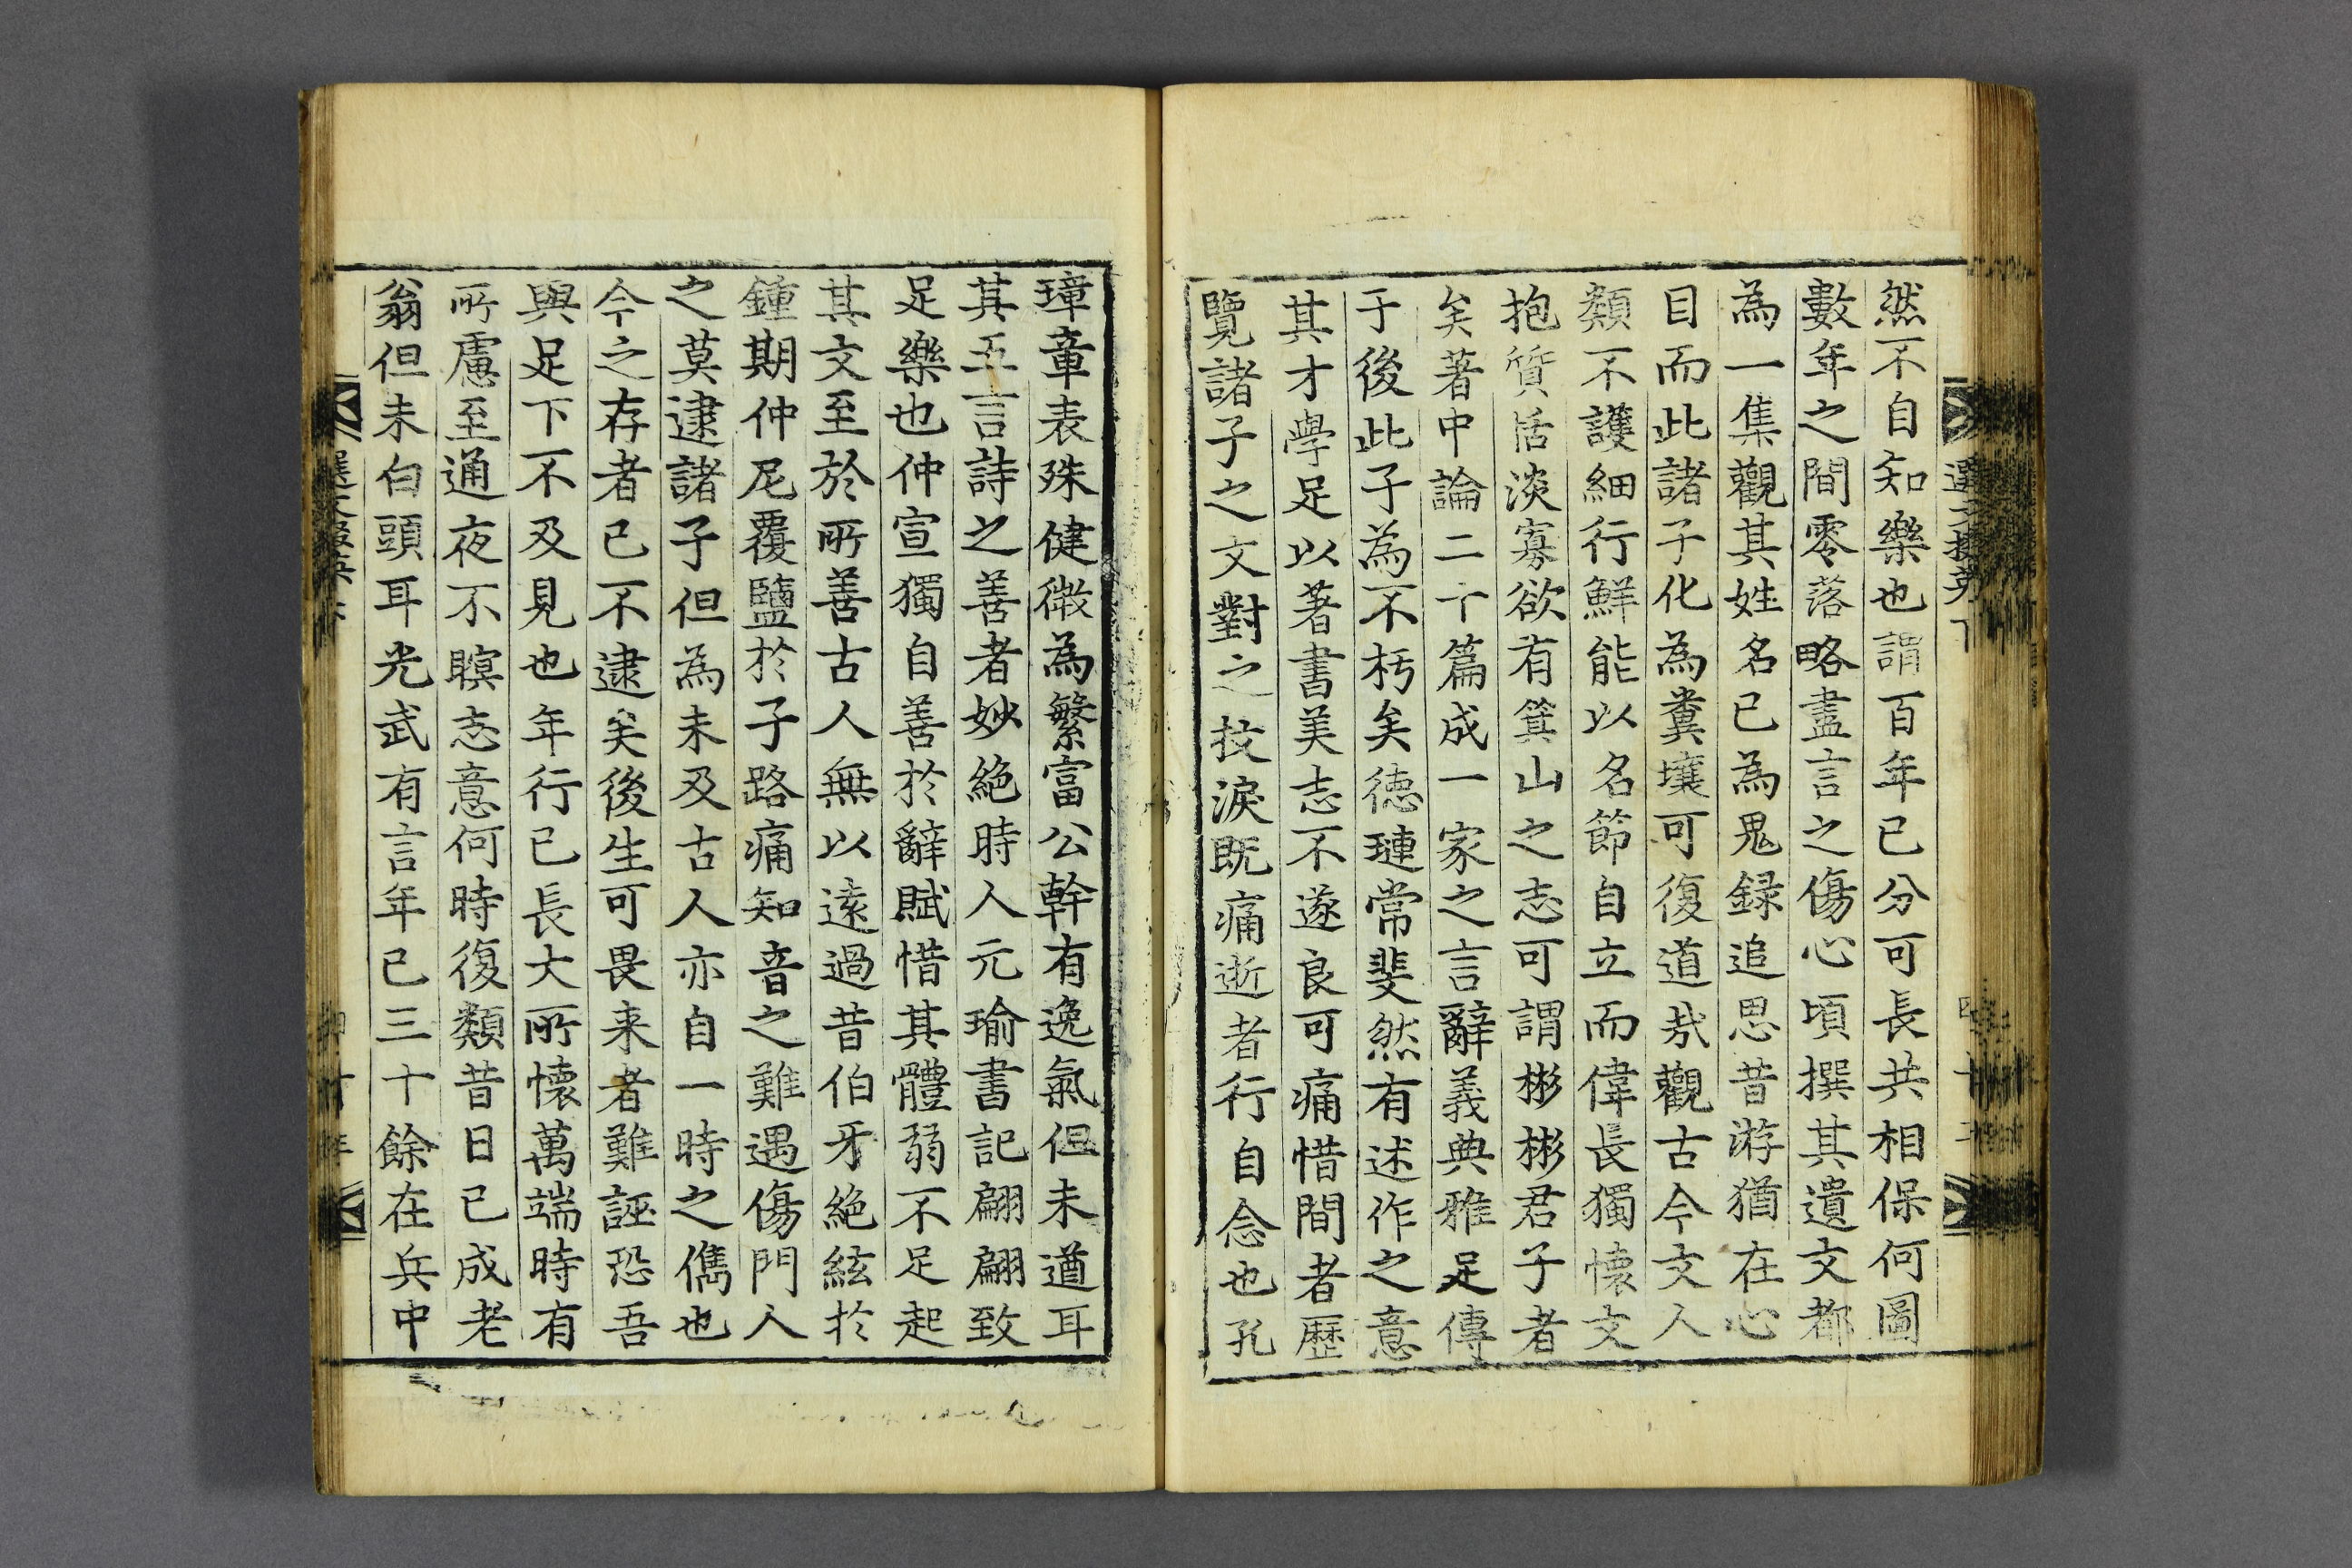 然不自知樂也謂百年已分可長共相保何圖
數年之間零落略盡言之傷心頃撰其遺文都
為一集觀其姓名已為鬼録追思昔游猶在心
目而此諸子化為糞壤可復道㢤觀古今文人
類不護細行鮮能以名節自立而偉長獨懷文
抱質恬淡寡欲有箕山之志可謂彬彬君子者
矣著中論二十篇成一家之言辭義典雅足傳
于後此子為不朽矣徳璉常斐然有述作之意
其才學足以著書美志不遂良可痛惜間者歷
覽諸子之文對之抆淚既痛逝者行自念也孔
璋章表殊健微為繁富公幹有逸氣但未遒耳
其五言詩之善者妙絶時人元瑜書記翩翩致
足樂也仲宣獨自善於辭賦惜其體弱不足起
其文至於所善古人無以遠過昔伯牙絶絃於
鍾期仲尼覆醢於子路痛知音之難遇傷門人
之莫逮諸子但為未及古人亦自一時之儁也
今之存者已不逮矣後生可畏来者難誣恐吾
與足下不及見也年行已長大所懷萬端時有
所慮至通夜不瞑志意何時復類昔日已成老
翁但未白頭耳光武有言年已三十餘在兵中